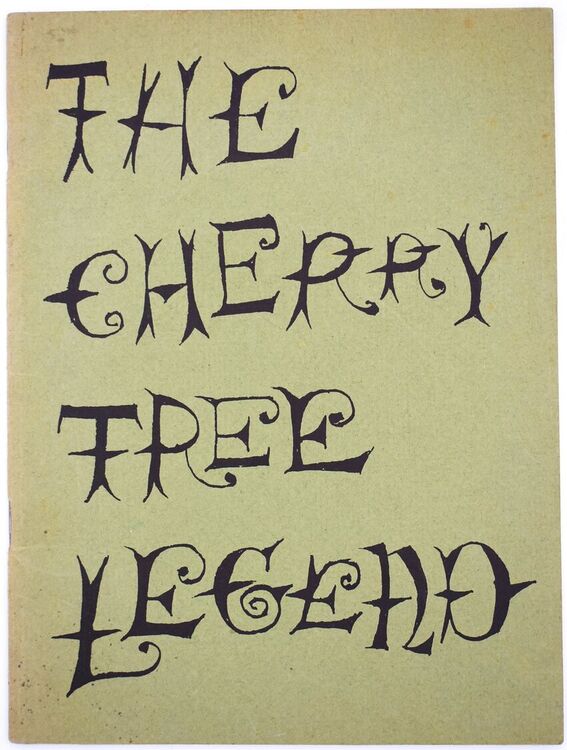 THE
CHERRY
TREE
LEGEND